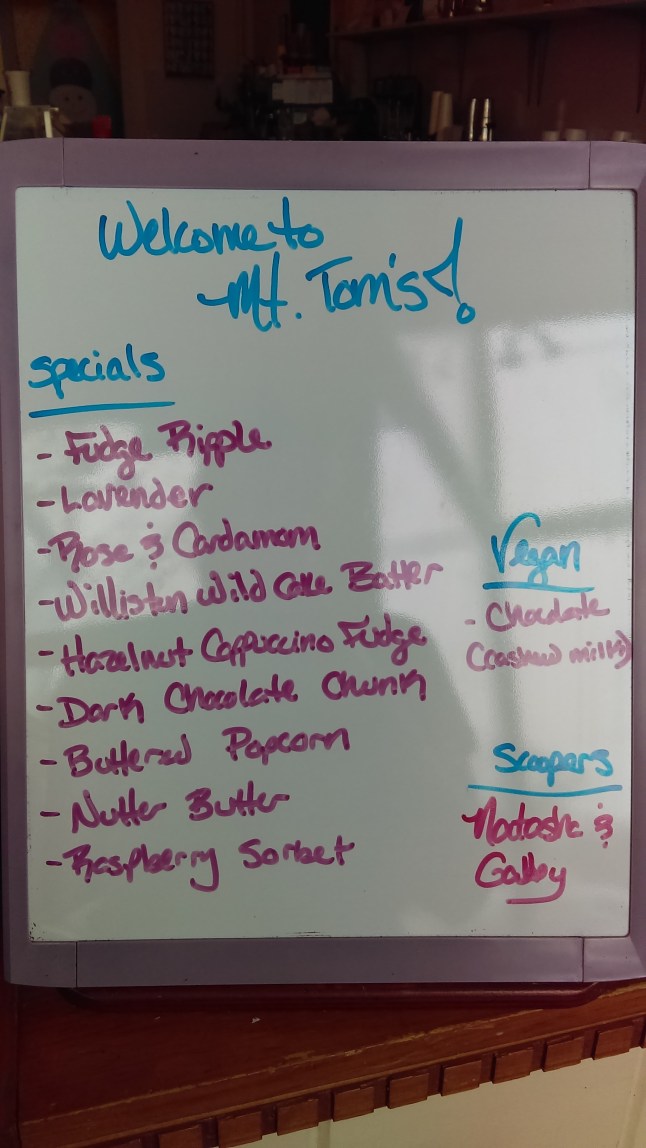 Welcome to
Mt. Tom's!
Specials
- Fudge Ripple
- Lavender
- Rose & Cardamom
- Williston Wild Cake Batter
- Hazelnut Cappuccino Fudge
- Dark Chocolate Chunk
- Buttered Popcorn
- Nutter Butter
- Raspberry Sorbet
Vegan
- Chocolate
(cashew milk)
Scoopers
Natasha &
Gabby